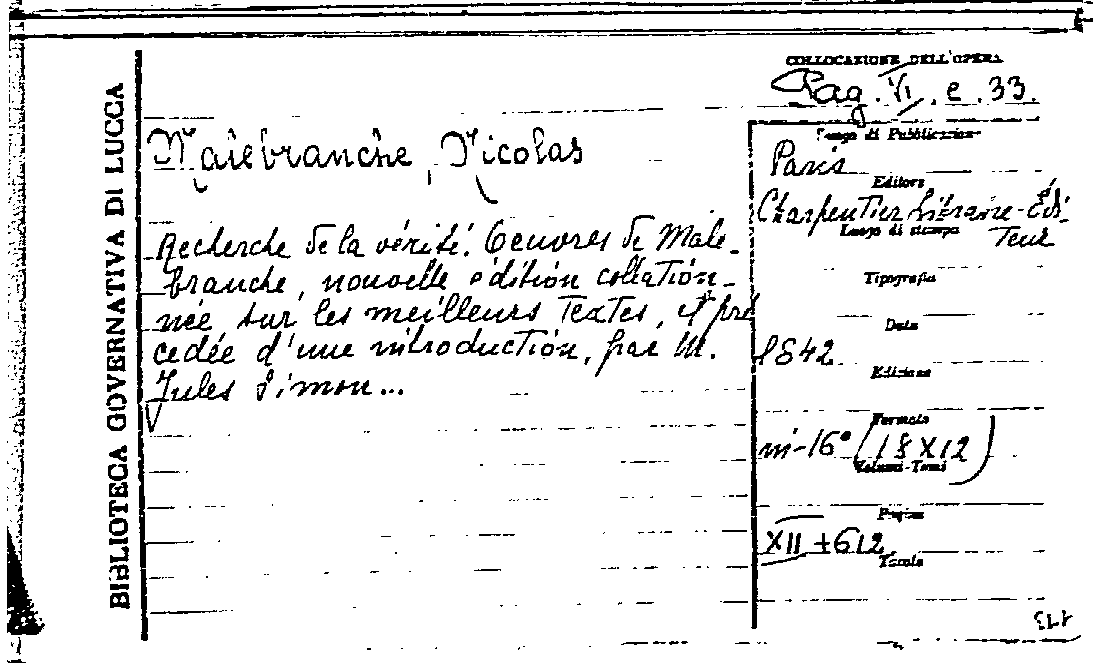 BIBLIOTECA GOVERNATIVA DI LUCCA
COLLOCAZIONE DELL'OPERA
Pag. VI. e. 33.
Malebranche, Nicolas
Recherche de la vérité. Oeuvres de Male-
branche, nouvelle édition collation-
née sur les meilleurs textes, et pré
cedée d'une introduction, par M.
Jules Simon...
Luogo di Pubblicazione
Paris
Editore
Charpentier Libraire-Édi-
teur
Luogo di stampa
Tipografia
Data
1842
Edizione
Formato
in-16° (18X12)
Volumi-Tomi
Pagine
XII+612
Tavole